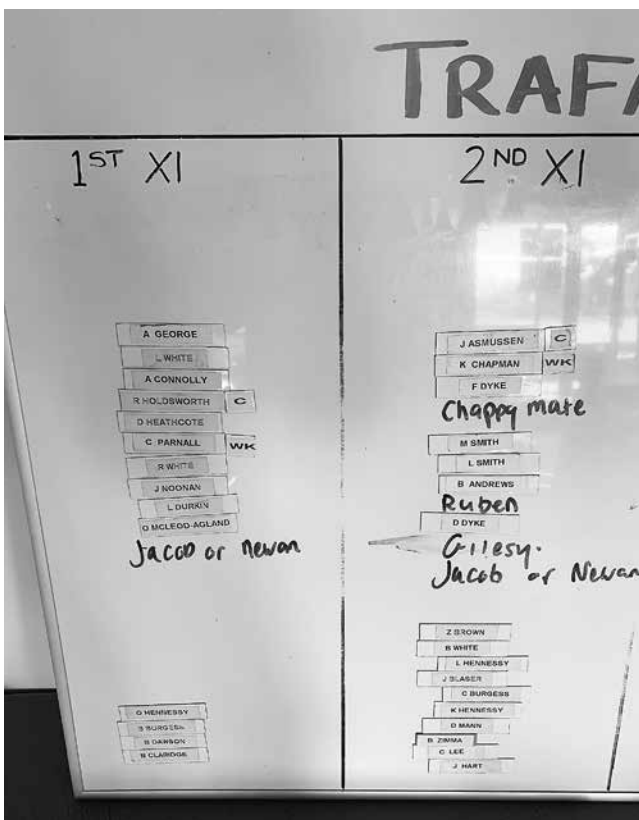 TRAFA
1ST XI
A GEORGE
L WHITE
A CONNOLLY
R HOLDSWORTH C
D HEATHCOTE
C PARNALL WK
R WHITE
J NOONAN
L DURKIN
O MCLEOD-AGLAND
Jacob or newan
O HENNESSY
S BURGESS
B DAWSON
B CLARIDGE
2ND XI
J ASMUSSEN C
K CHAPMAN WK
F DYKE
Chappy mate
M SMITH
L SMITH
B ANDREWS
Ruben
D DYKE
Gilesy.
Jacob or Newan
Z BROWN
B WHITE
L HENNESSY
J BLASER
C BURGESS
K HENNESSY
D MANN
B ZIMMA
C LEE
J HART